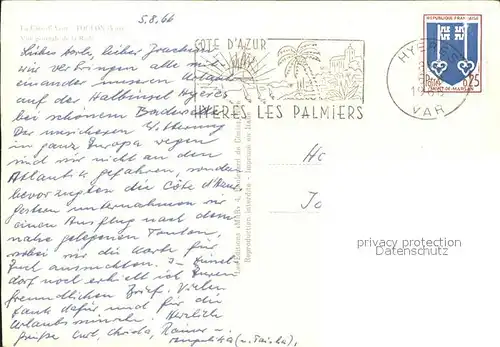 5.8.66
La Côte d'Azur - TOULON (Var)
Vue générale de la Rade
Liebe Carla, lieber Joachim
wir verbringen alle mit-
einander unseren Urlaub
auf der Halbinsel Hyères
bei schönem Badewetter.
Der unsicheren Witterung
in ganz Europa wegen
sind wir nicht an den
Atlantik gefahren, sondern
bevorzugten die Côte d'Azur.
Gestern unternahmen wir
einen Ausflug nach dem
nahe gelegenen Toulon,
wobei wir die Karte für
Euch aussuchten. In
dorf noch erhielt ich Euren
freundlichen Brief. Vielen
Dank dafür und für die
Urlaubswünsche. Herzliche
Grüße Curt, Rainer
Angelika (u.
COTE D'AZUR
HYERES LES PALMIERS
HYERES
VAR
REPUBLIQUE FRANCAISE
0,25
MONT-DE-MARSAN
Reproduction interdite - Imprimé en Italie
privacy protection
Datenschutz